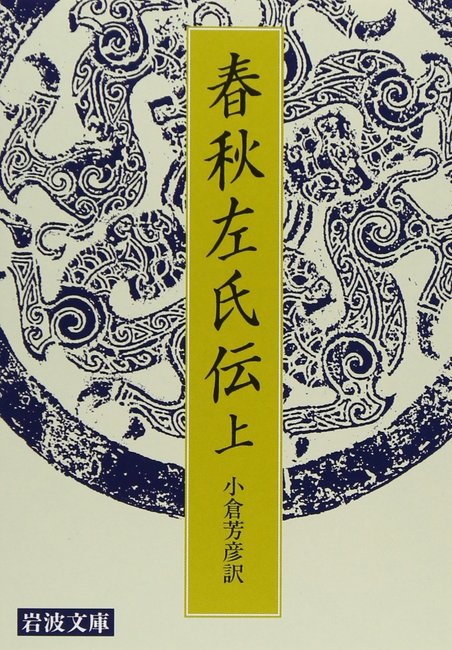 春秋左氏伝 上
小倉芳彦訳
岩波文庫